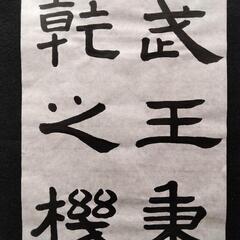 武王秉
乾之機